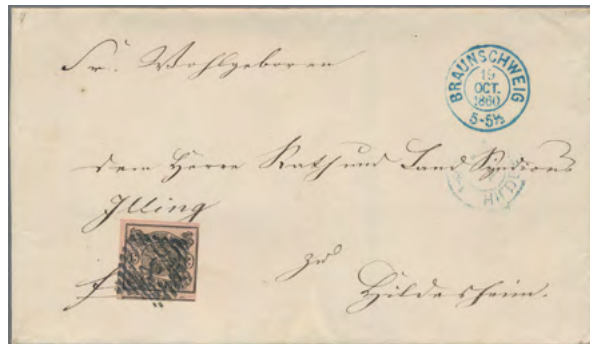 Sr. Wohlgeboren
BRAUNSCHWEIG
19
OCT.
1860
5-5½
dem Herrn Rath und Land Syndicus
HILDE
Illing
zu
Hildesheim.